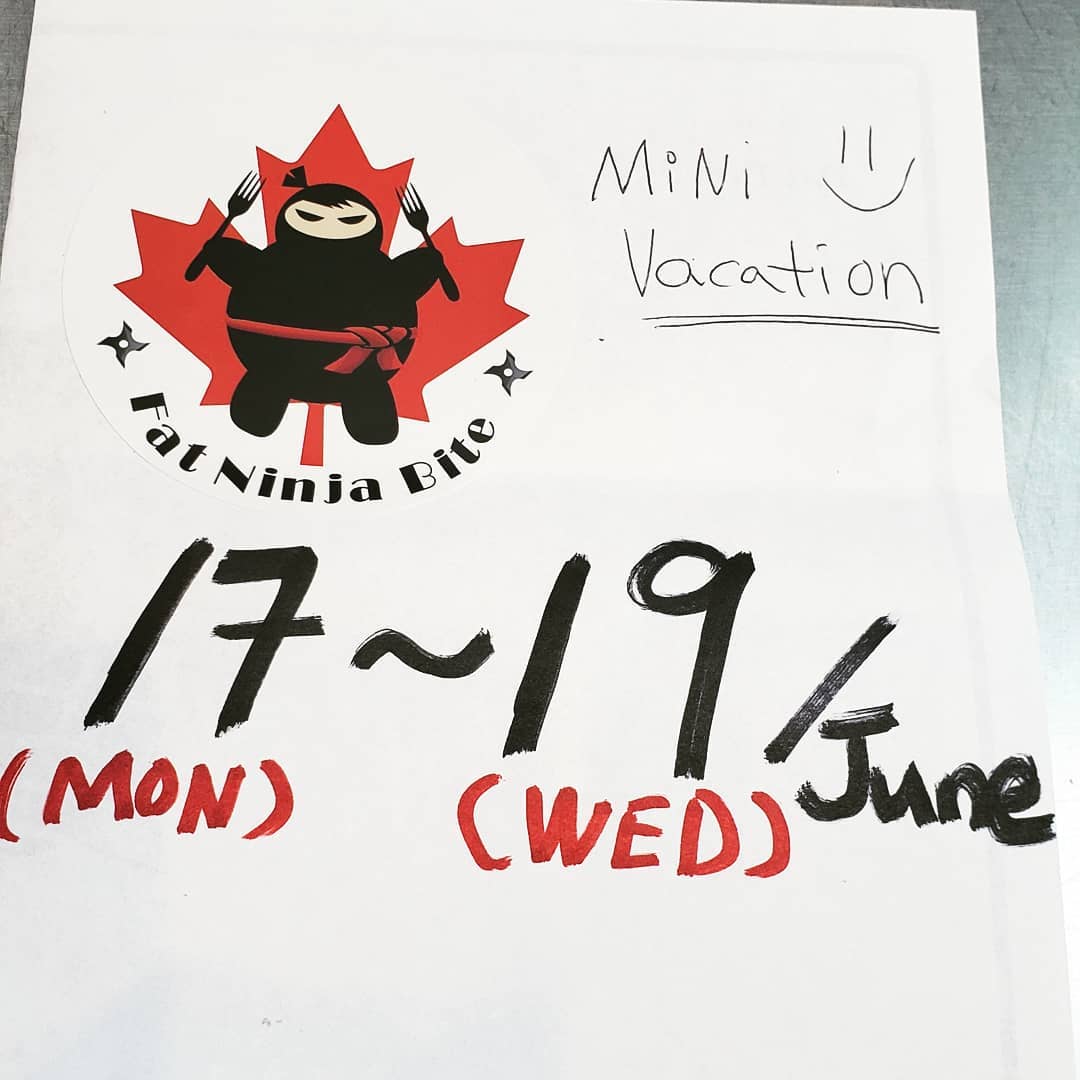 MiNi
Vacation
Fat Ninja Bite
17~19/June
(MON) (WED)